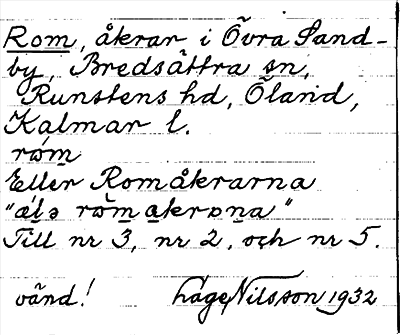 Rom, åkrar i Övra Sand-
by, Bredsättra sn,
Runstens hd, Öland,
Kalmar l.
róm̲
Eller Romåkrarna
"ǽl̲ə rŏm̲a̲krɒn̲a"
Till nr 3, nr 2, och nr 5.
vänd! Håge Nilsson 1932